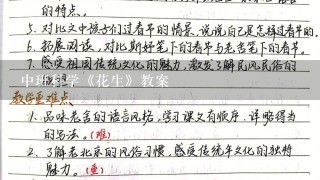 的特点。
5. 对比文中孩子们过春节的情景,说说自己是怎样过春节的。
6. 拓展阅读,对比斯好笔下的春节与老舍笔下的春节。
7. 感受祖国传统文化的魅力,激发了解民风民俗的
中班科学《花生》教案
教学重难点
1. 品味老舍的语言风格,学习课文有顺序、详略得当
的写法。(难)
2. 了解老北京的风俗习惯,感受传统年文化的独特
魅力。(重)